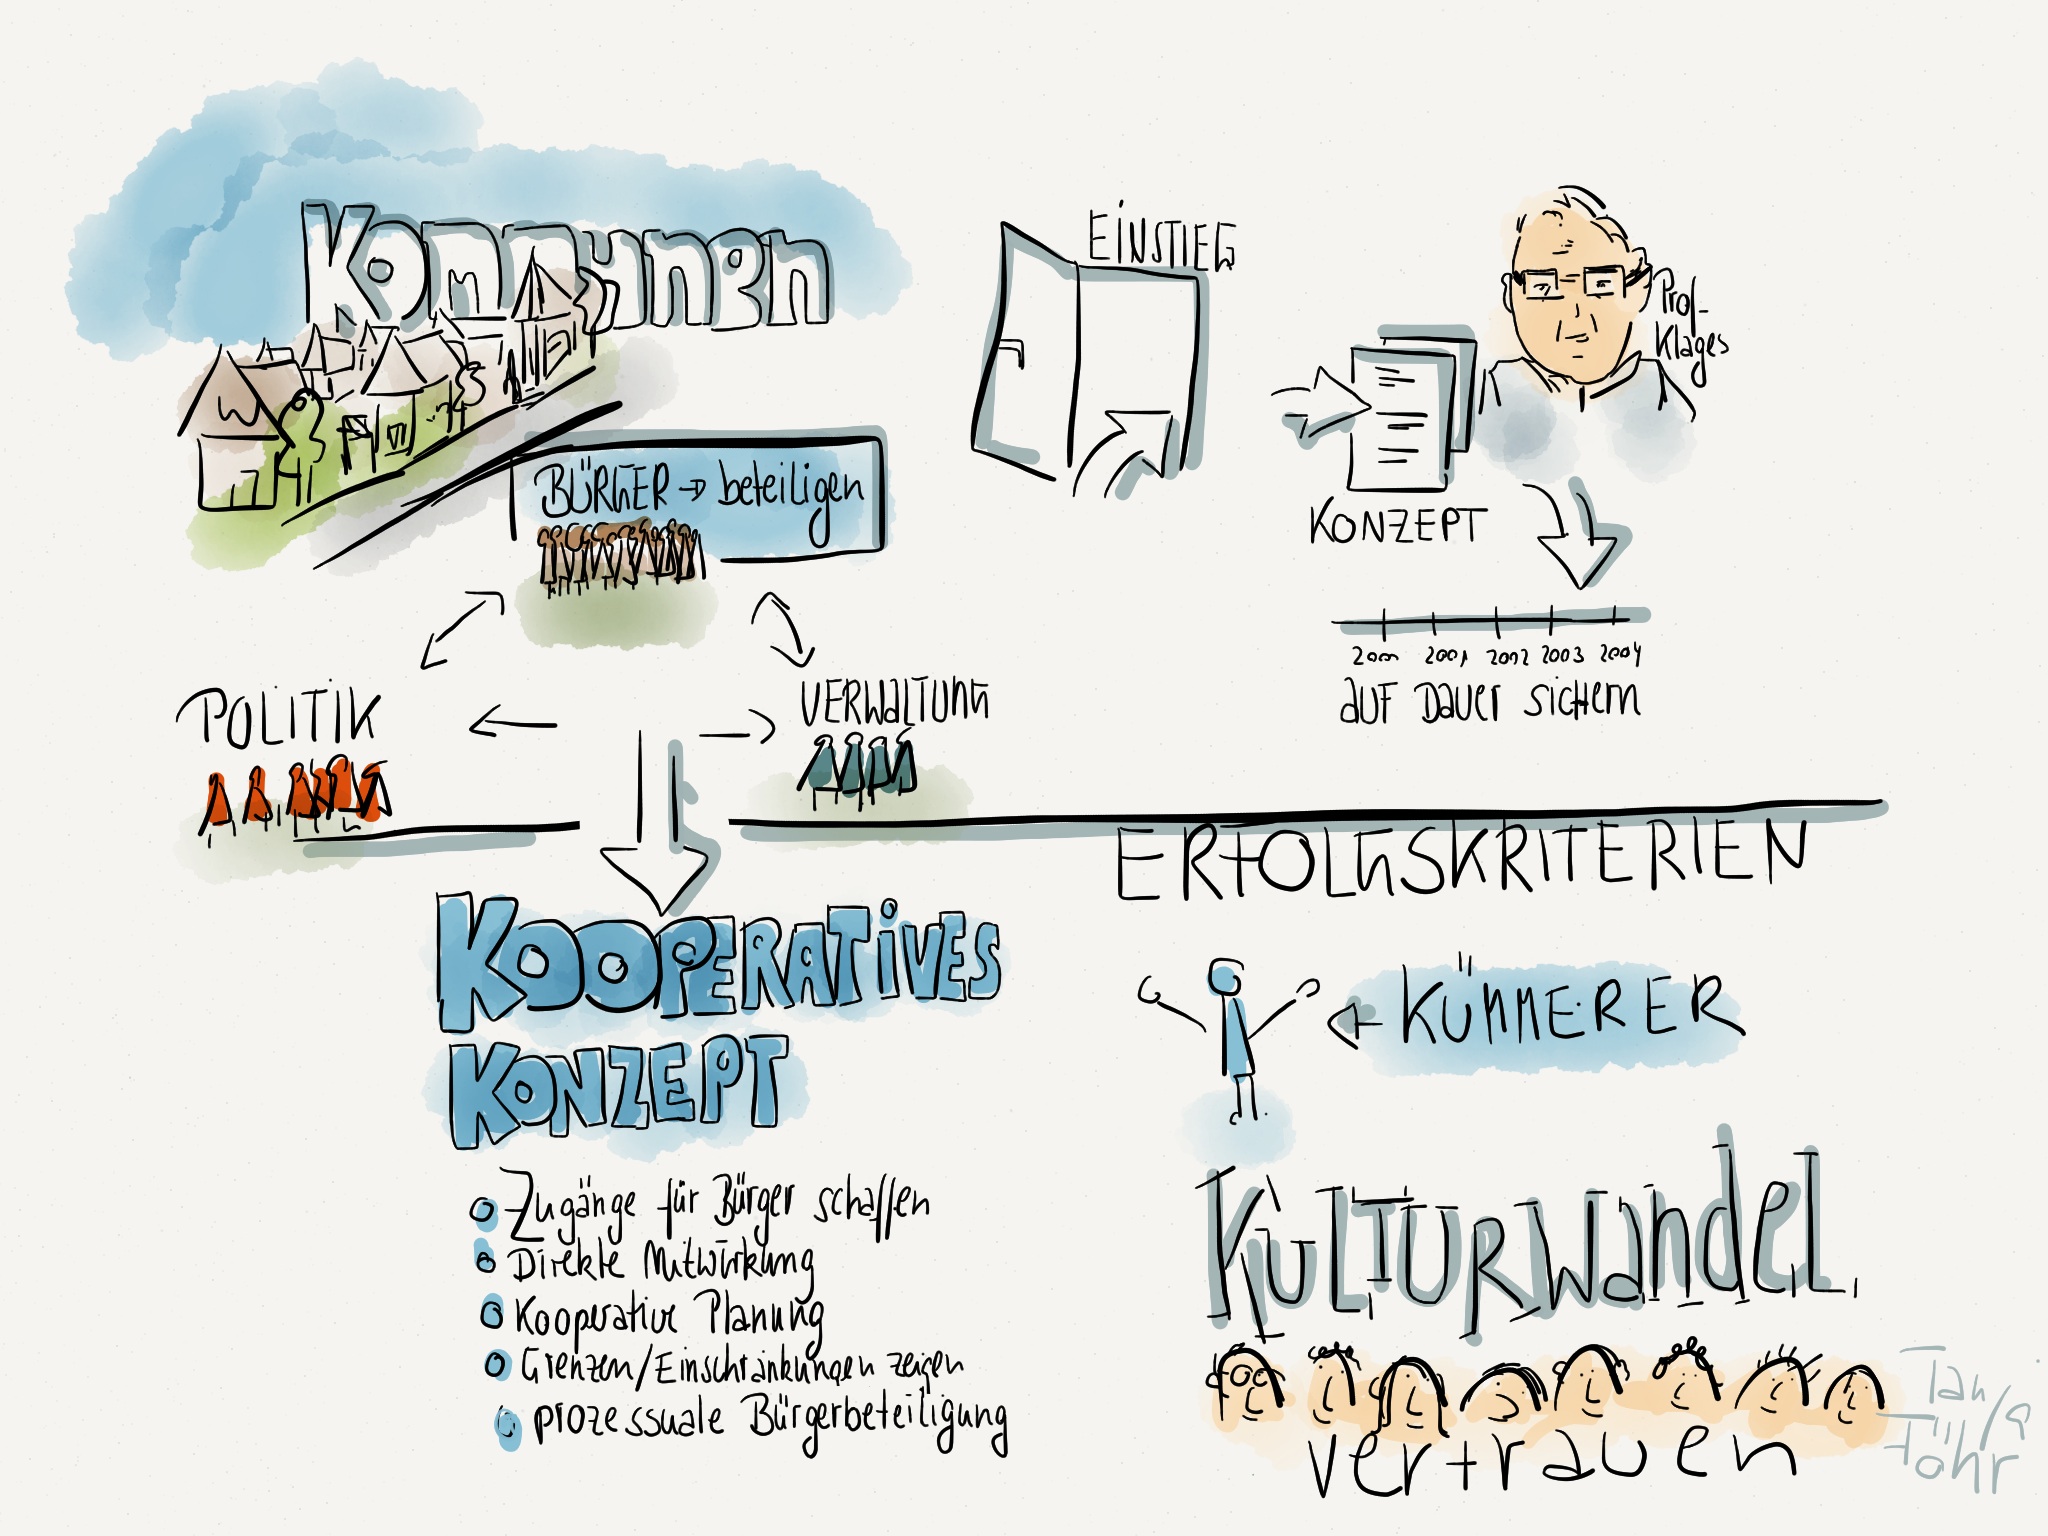 Kommunen
BÜRGER → beteiligen
POLITIK
VERWALTUNG
EINSTIEG
Prof.
Klages
KONZEPT
2000 2001 2002 2003 2004
auf Dauer sichern
KOOPERATIVES
KONZEPT
Zugänge für Bürger schaffen
Direkte Mitwirkung
Kooperative Planung
Grenzen/Einschränkungen zeigen
prozessuale Bürgerbeteiligung
ERFOLGSKRITERIEN
KÜMMERER
KULTURWandel
vertrauen
Tanja
Föhr